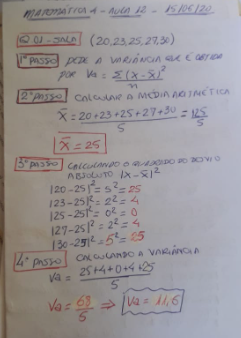 MATEMÁTICA 4 - AULA 12 - 15/05/20
Q 01 - SALA (20,23,25,27,30)
1º PASSO PEDE A VARIÂNCIA QUE É OBTIDA
POR Va = Σ(X - X̄)²/n
2º PASSO CALCULAR A MÉDIA ARITMÉTICA
X̄ = 20+23+25+27+30/5 = 125/5
X̄ = 25
3º PASSO CALCULANDO O QUADRADO DO DESVIO
ABSOLUTO |X - X̄|²
|20-25|² = 5² = 25
|23-25|² = 2² = 4
|25-25|² = 0² = 0
|27-25|² = 2² = 4
|30-25|² = 5² = 25
4º PASSO CALCULANDO A VARIÂNCIA
Va = 25+4+0+4+25/5
Va = 58/5 ⇒ Va = 11,6